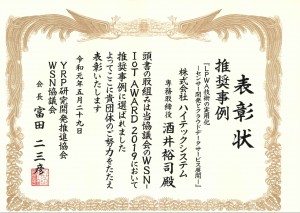 表彰状
推奨事例
『LPWA技術の実用化
~センサー開発とクラウドデータサービス展開~』
株式会社 ハイテックシステム
専務取締役 酒井裕司殿
頭書の取組みは当協議会のWSN-
IoT AWARD 2019において
推奨事例に選ばれました
よってここに貴団体のご努力をたたえ
表彰いたします
令和元年五月二十九日
YRP研究開発推進協会
WSN協議会
会長 富田二三彦